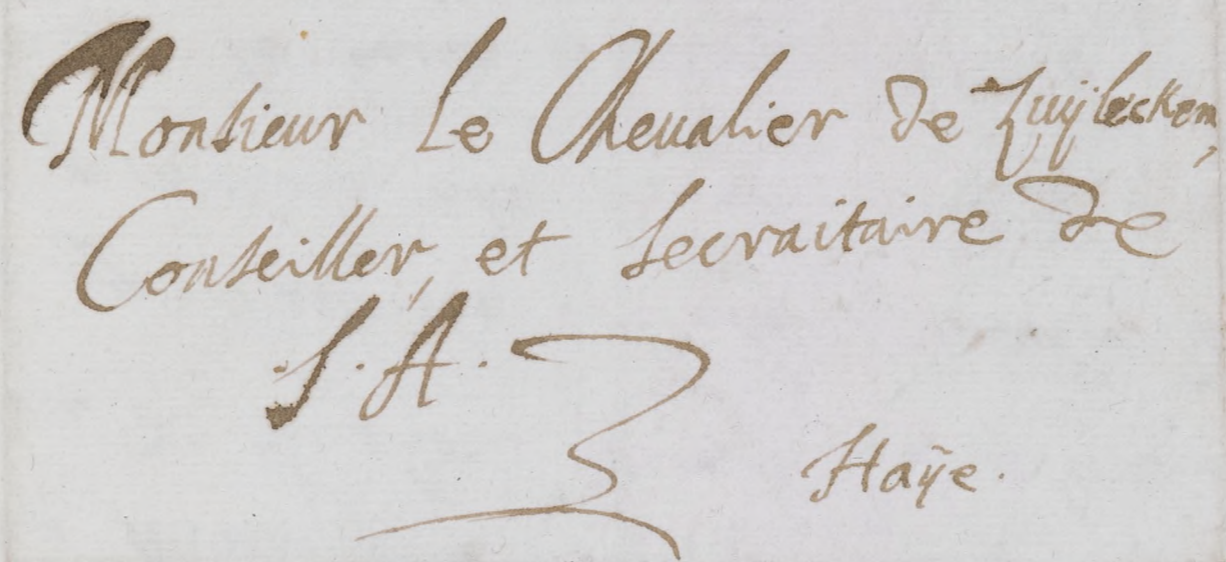 Monsieur Le Chevalier de Zuÿleckem,
Conseiller, et secraitaire de
S. A.
Haÿe.